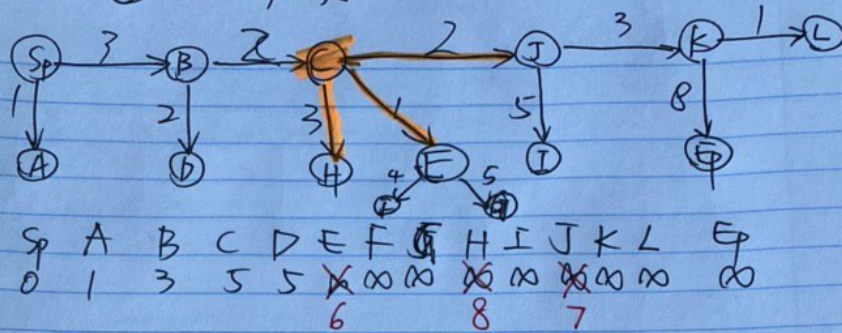 3 2 2 3 1
Sp B C J K L
1 2 3 1 5 8
A D H E I Ep
4 5
F G
Sp A B C D E F G H I J K L Ep
0 1 3 5 5 ∞ ∞ ∞ ∞ ∞ ∞ ∞ ∞ ∞
6 8 7